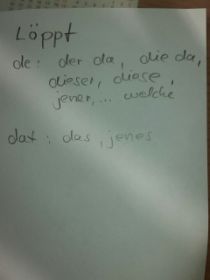 Löppt
de: der da, die da,
dieser, diese,
jener, ... welche
dat: das, jenes